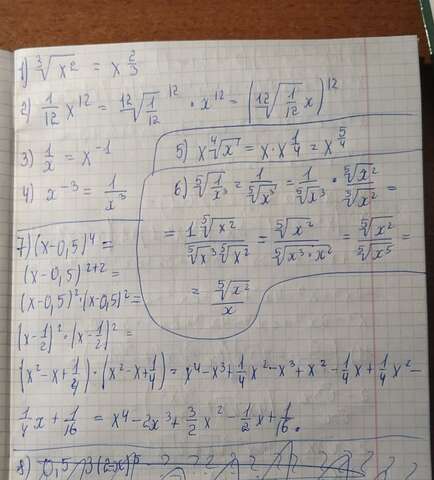 1) ∛x² = x^(2/3)
2) 1/12 x¹² = ¹²√(1/12)¹² · x¹² = (¹²√(1/12) x)¹²
3) 1/x = x⁻¹
5) x ⁴√x = x · x^(1/4) = x^(5/4)
4) x⁻³ = 1/x³
6) ⁵√(1/x³) = 1/⁵√x³ = 1/⁵√x³ · ⁵√x²/⁵√x² =
= 1 ⁵√x²/(⁵√x³ ⁵√x²) = ⁵√x²/⁵√(x³·x²) = ⁵√x²/⁵√x⁵ =
= ⁵√x²/x
7) (x-0,5)⁴ =
(x-0,5)²⁺² =
(x-0,5)²·(x-0,5)² =
(x-1/2)²·(x-1/2)² =
(x²-x+1/4)·(x²-x+1/4) = x⁴-x³+1/4x²-x³+x²-1/4x+1/4x²-
1/4x+1/16 = x⁴-2x³+3/2x²-1/2x+1/16.
8)